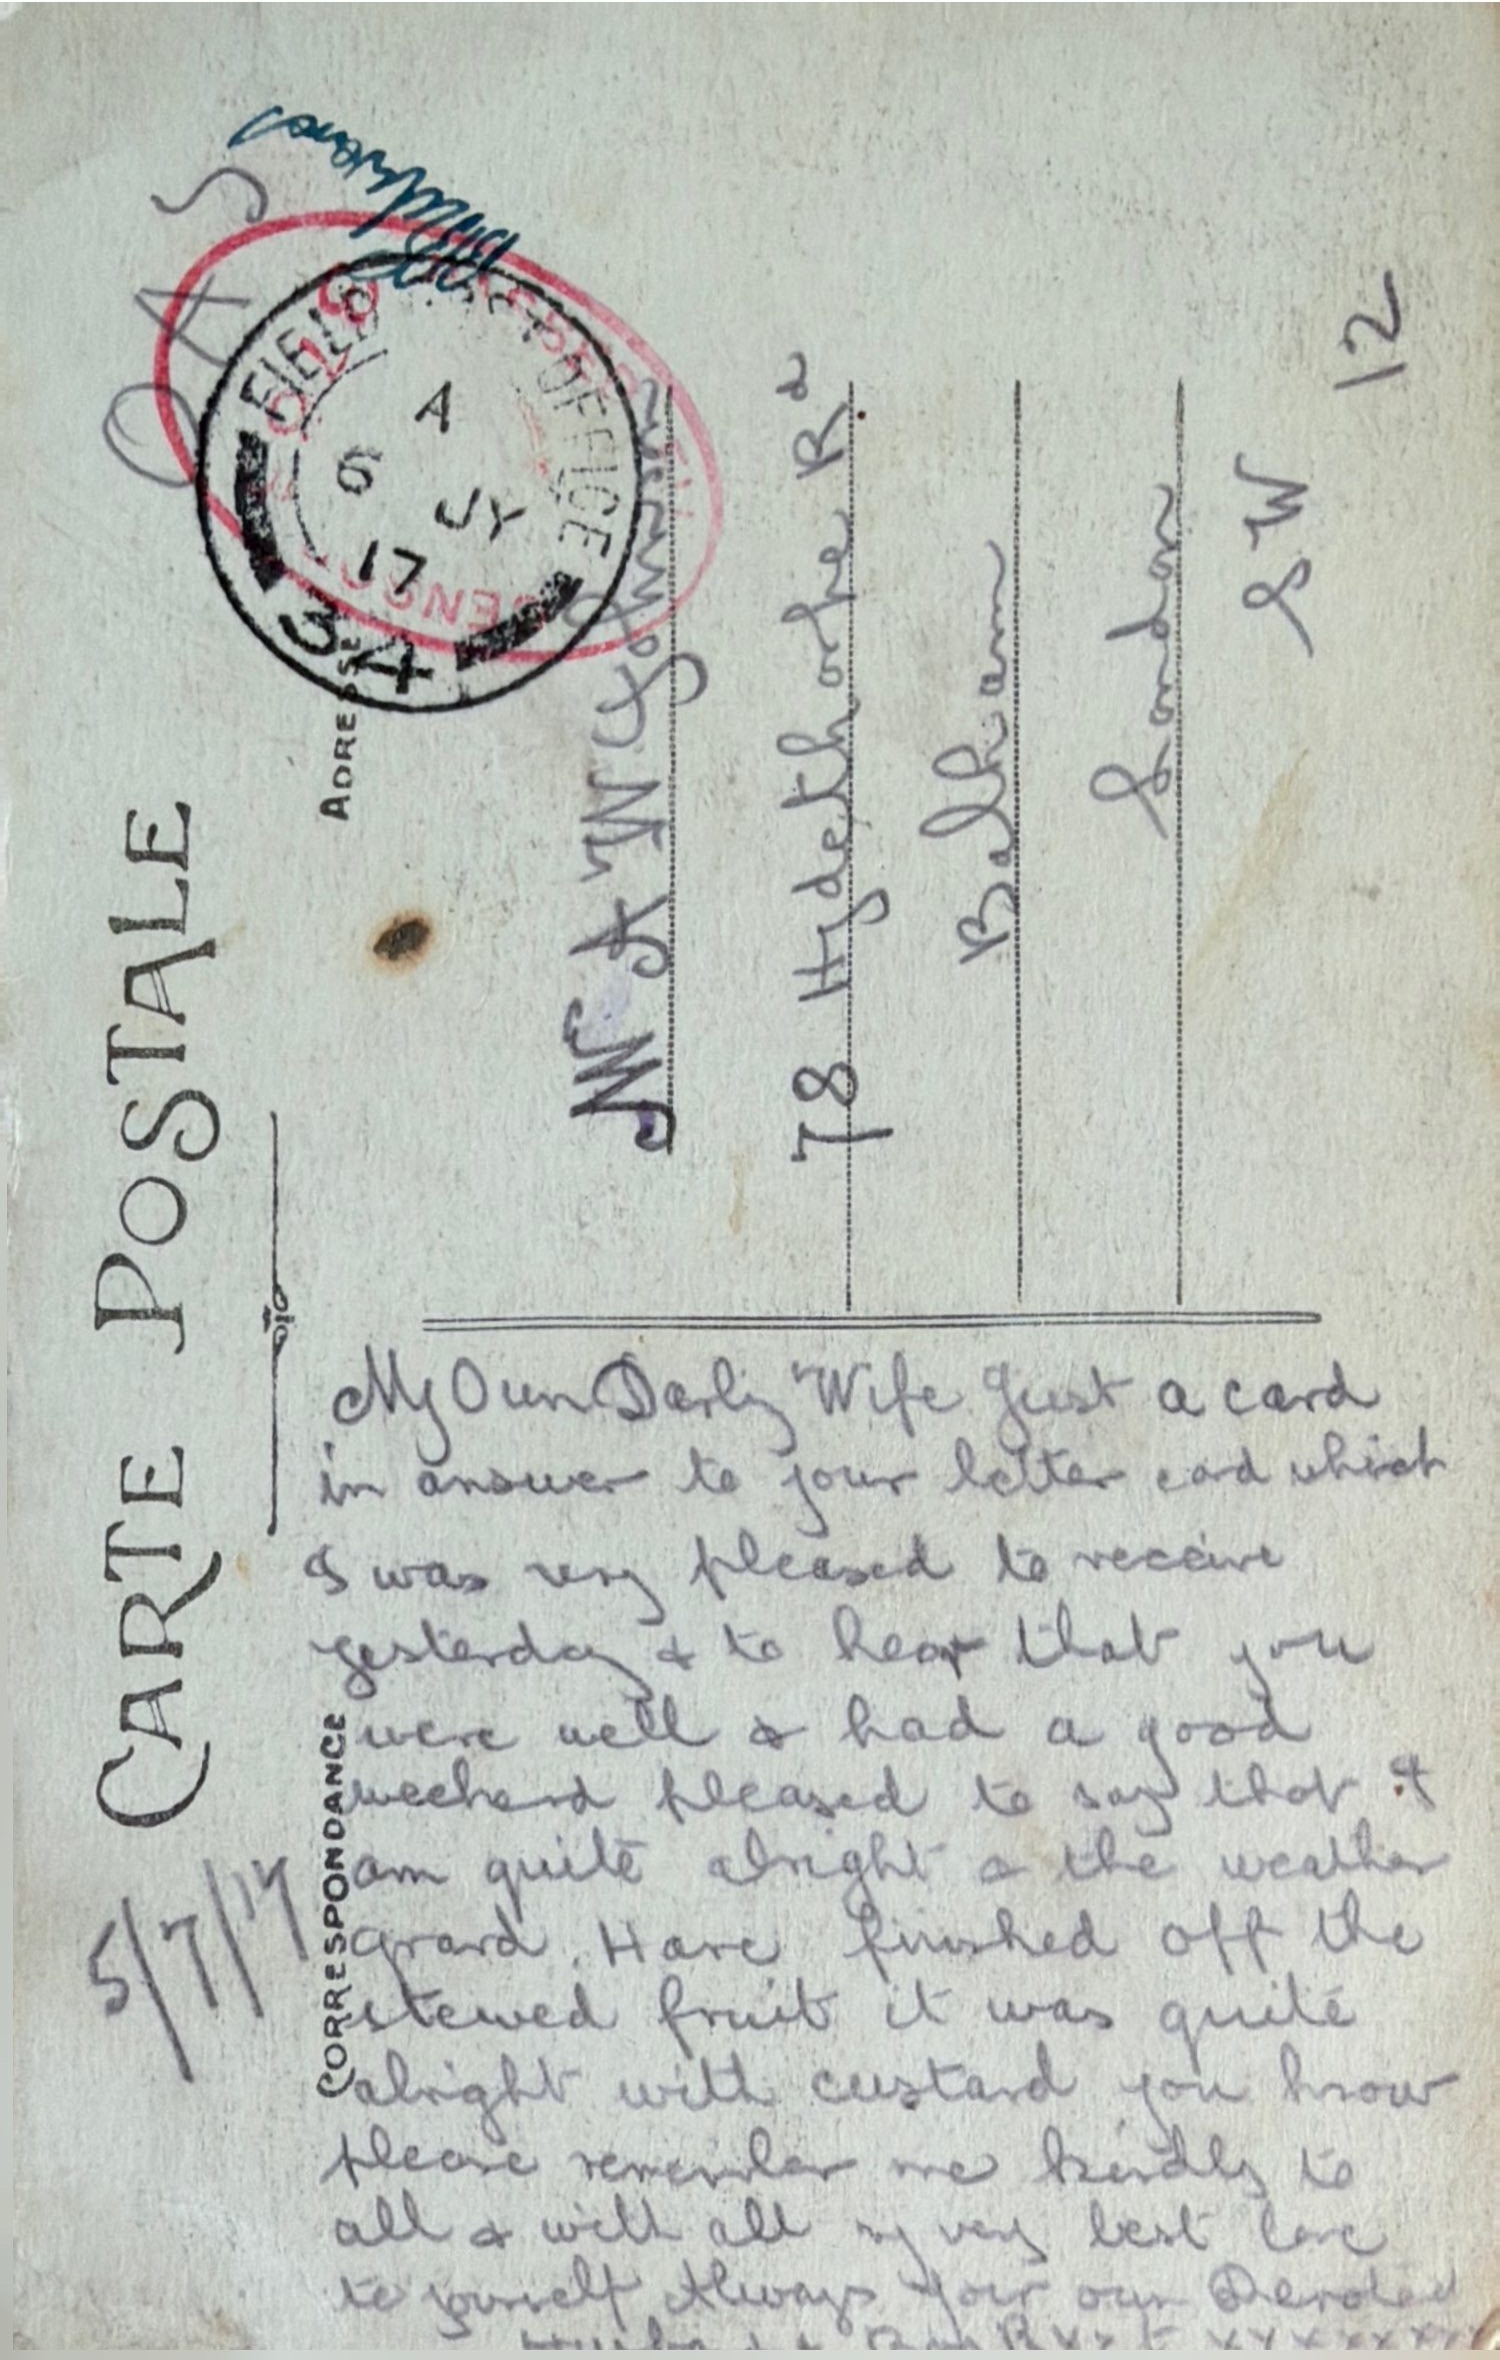 CARTE POSTALE
5/7/17
CORRESPONDANCE
ADRESSE
OAS
FIELD POST OFFICE
A
6 JY
17
34
CENSOR
A W Johnson
78 Hydethorpe Rd
Balham
London
S W
12
My Own Darling Wife Just a card
in answer to your letter card which
I was very pleased to receive
yesterday & to hear that you
were well & had a good
weekend pleased to say that I
am quite alright & the weather
grand. Have finished off the
stewed fruit it was quite
alright with custard you know
please remember me kindly to
all & with all my very best love
to yourself Always Your own Devoted